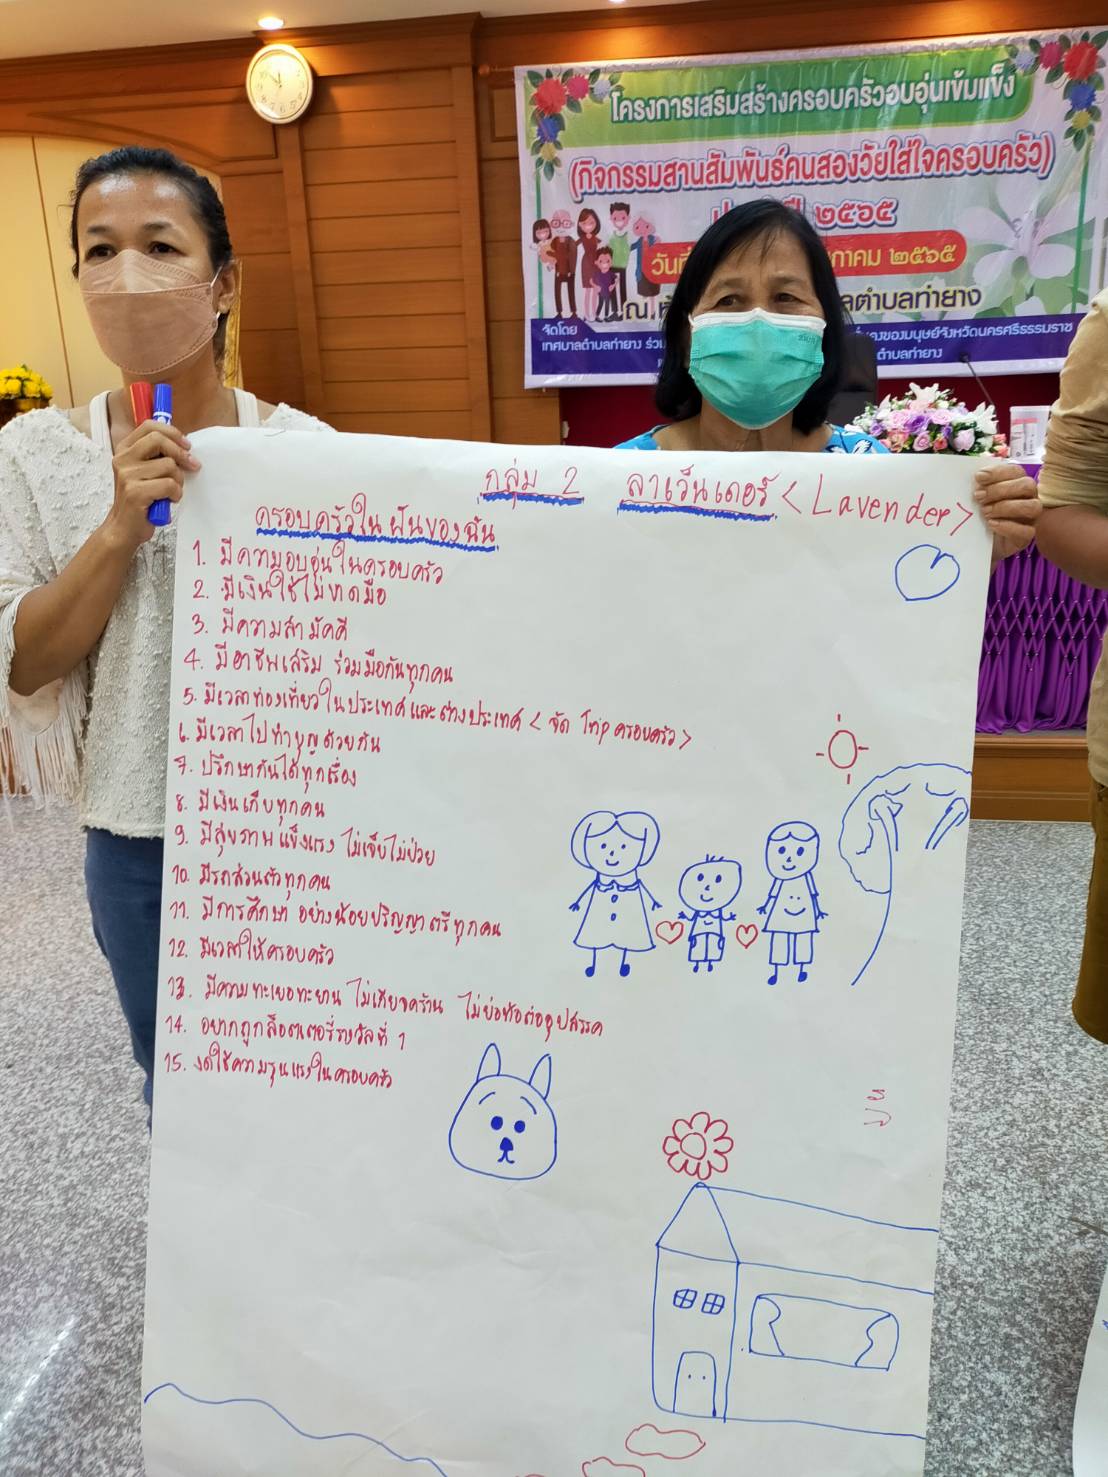 โครงการเสริมสร้างครอบครัวอบอุ่นเข้มแข็ง
(กิจกรรมสานสัมพันธ์คนสองวัยใส่ใจครอบครัว)
ปี ๒๕๖๕
วันที่ าคม ๒๕๖๕
ณ ตำบลท่ายาง
จัดโดย
เทศบาลตำบลท่ายาง ร่วม ของมนุษย์จังหวัดนครศรีธรรมราช
ตำบลท่ายาง
กลุ่ม 2 ลาเว็นเดอร์ <Lavender>
ครอบครัวในฝันของฉัน
1. มีความอบอุ่นในครอบครัว
2. มีเงินใช้ไม่ขาดมือ
3. มีความสามัคคี
4. มีอาชีพเสริม ร่วมมือกันทุกคน
5. มีเวลาท่องเที่ยวในประเทศและต่างประเทศ < จัด Trip ครอบครัว >
6. มีเวลาไปทำบุญด้วยกัน
7. ปรึกษากันได้ทุกเรื่อง
8. มีเงินเก็บทุกคน
9. มีสุขภาพแข็งแรง ไม่เจ็บไม่ป่วย
10. มีรถส่วนตัวทุกคน
11. มีการศึกษา อย่างน้อยปริญญาตรีทุกคน
12. มีเวลาให้ครอบครัว
13. มีความทะเยอทะยาน ไม่เกียจคร้าน ไม่ย่อท้อต่ออุปสรรค
14. อยากถูกล็อตเตอรี่รางวัลที่ 1
15. งดใช้ความรุนแรงในครอบครัว